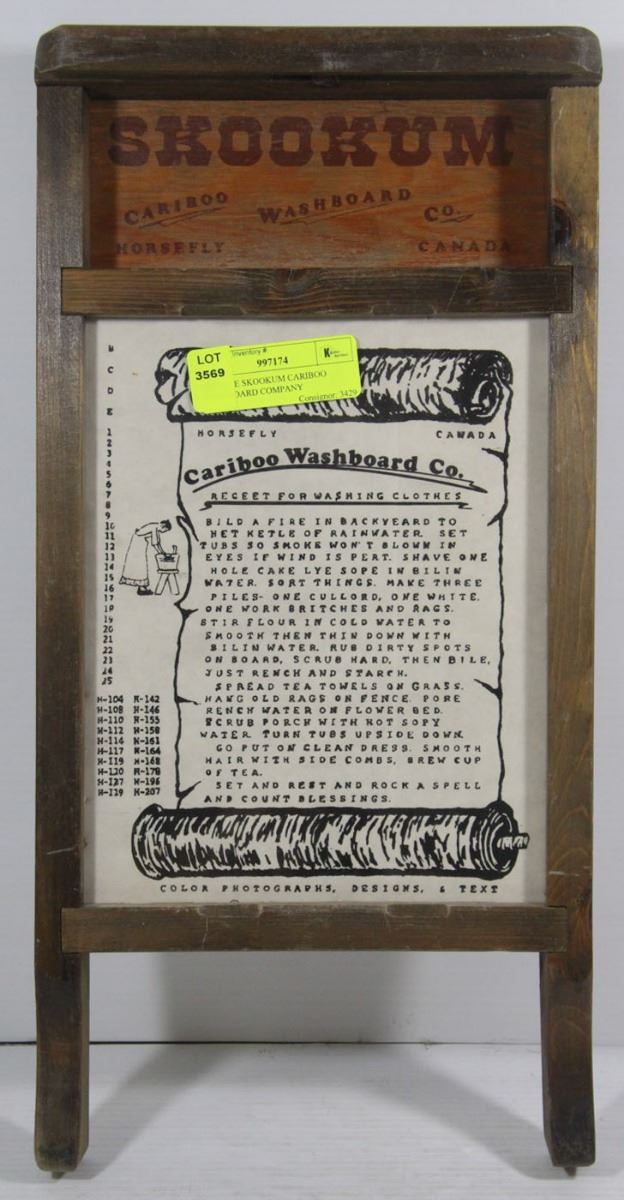 SKOOKUM
CARIBOO WASHBOARD CO.
HORSEFLY CANADA
LOT
3569
Inventory #
997174
E SKOOKUM CARIBOO
OARD COMPANY
Consignor: 3429
HORSEFLY CANADA
Cariboo Washboard Co.
RECEET FOR WASHING CLOTHES
BILD A FIRE IN BACKYEARD TO
HET KETLE OF RAINWATER. SET
TUBS SO SMOKE WON'T BLOWN IN
EYES IF WIND IS PERT. SHAVE ONE
HOLE CAKE LYE SOPE IN BILIN
WATER. SORT THINGS. MAKE THREE
PILES- ONE CULLORD, ONE WHITE,
ONE WORK BRITCHES AND RAGS.
STIR FLOUR IN COLD WATER TO
SMOOTH THEN THIN DOWN WITH
BILIN WATER. RUB DIRTY SPOTS
ON BOARD, SCRUB HARD, THEN BILE,
JUST RENCH AND STARCH.
SPREAD TEA TOWELS ON GRASS.
HANG OLD RAGS ON FENCE. PORE
RENCH WATER ON FLOWER BED.
SCRUB PORCH WITH HOT SOPY
WATER. TURN TUBS UPSIDE DOWN.
GO PUT ON CLEAN DRESS. SMOOTH
HAIR WITH SIDE COMBS, BREW CUP
OF TEA.
SET AND REST AND ROCK A SPELL
AND COUNT BLESSINGS.
COLOR PHOTOGRAPHS, DESIGNS, & TEXT
C
D
E
1
2
3
4
5
6
7
8
9
10
11
12
13
14
15
16
17
18
19
20
21
22
23
24
25
H-104 K-142
H-108 K-146
H-110 K-155
H-112 K-158
H-114 K-161
H-117 K-164
H-119 K-168
H-120 K-178
H-127 K-196
H-129 K-207